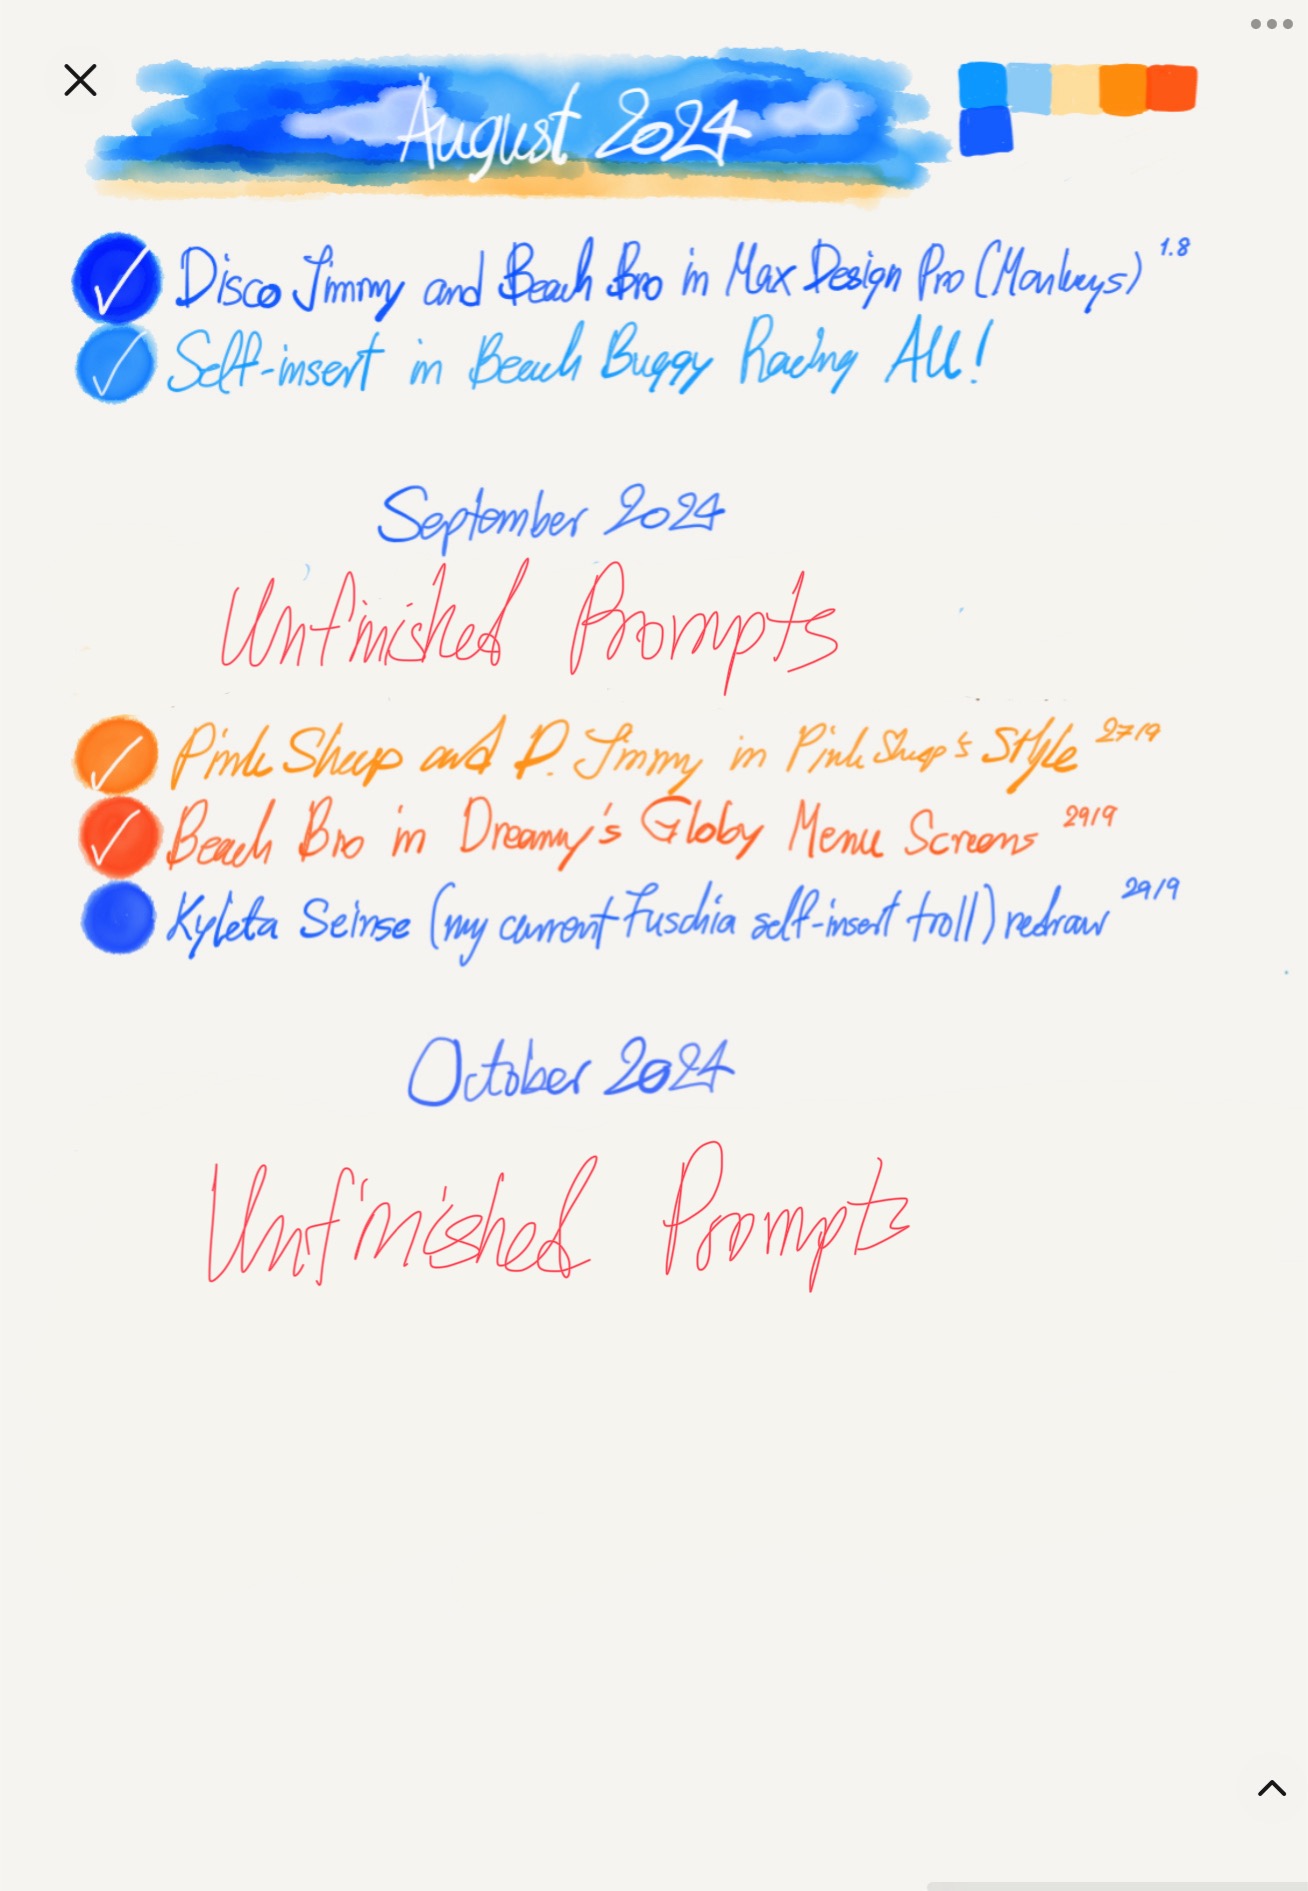 August 2024
Disco Jimmy and Beach Bro in Max Design Pro (Monkeys) 1.8
Self-insert in Beach Buggy Racing All!
September 2024
Unfinished Prompts
Pink Sheep and D. Jimmy in Pink Sheep's Style 27/9
Beach Bro in Dreamy's Globy Menu Screens 29/9
Kyleta Seinse (my current Fuschia self-insert troll) redraw 29/9
October 2024
Unfinished Prompts